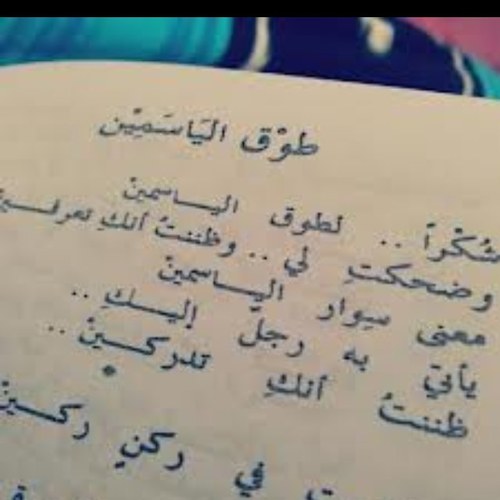 طَوْق اليَاسَمِيْن
شُكْراً .. لطوق الياسمينْ
وضحكتِ لي .. وظننتُ أنكِ تعرفينْ
معنى سِوار الياسمينْ
يأتي به رجلٌ إليكِ ..
ظننتُ أنكِ تدركينْ ..
*
في ركنٍ ركينْ